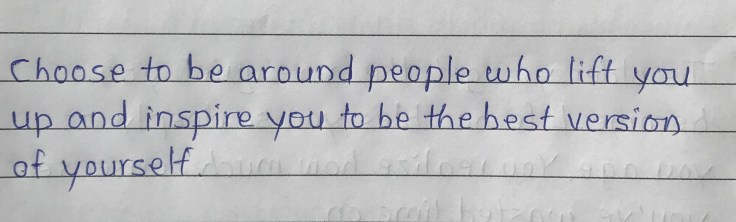 Choose to be around people who lift you
up and inspire you to be the best version
of yourself.